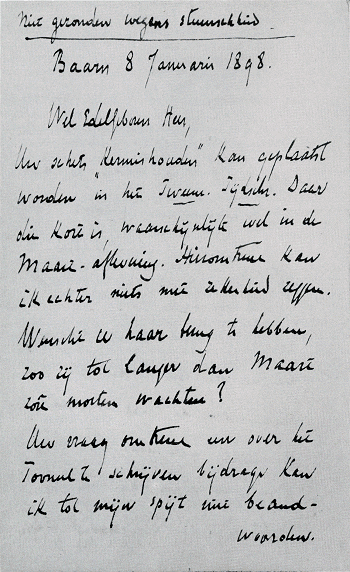 Niet gezonden wegens stommiteit.
Baarn 8 Januarie 1898.
Wel Edelgeboren Heer,
Uw schets "Kermishouden" kan geplaatst
worden in het Tweem. Tijdschr. Daar
die kort is, waarschijnlijk wel in de
Maart-aflevering. Hieromtrent kan
ik echter niets met zekerheid zeggen.
Wenscht U haar terug te hebben,
zoo zij tot langer dan Maart
zou moeten wachten?
Uw vraag omtrent een over het
Tooneel te schrijven bijdrage kan
ik tot mijn spijt niet beand-
woorden.